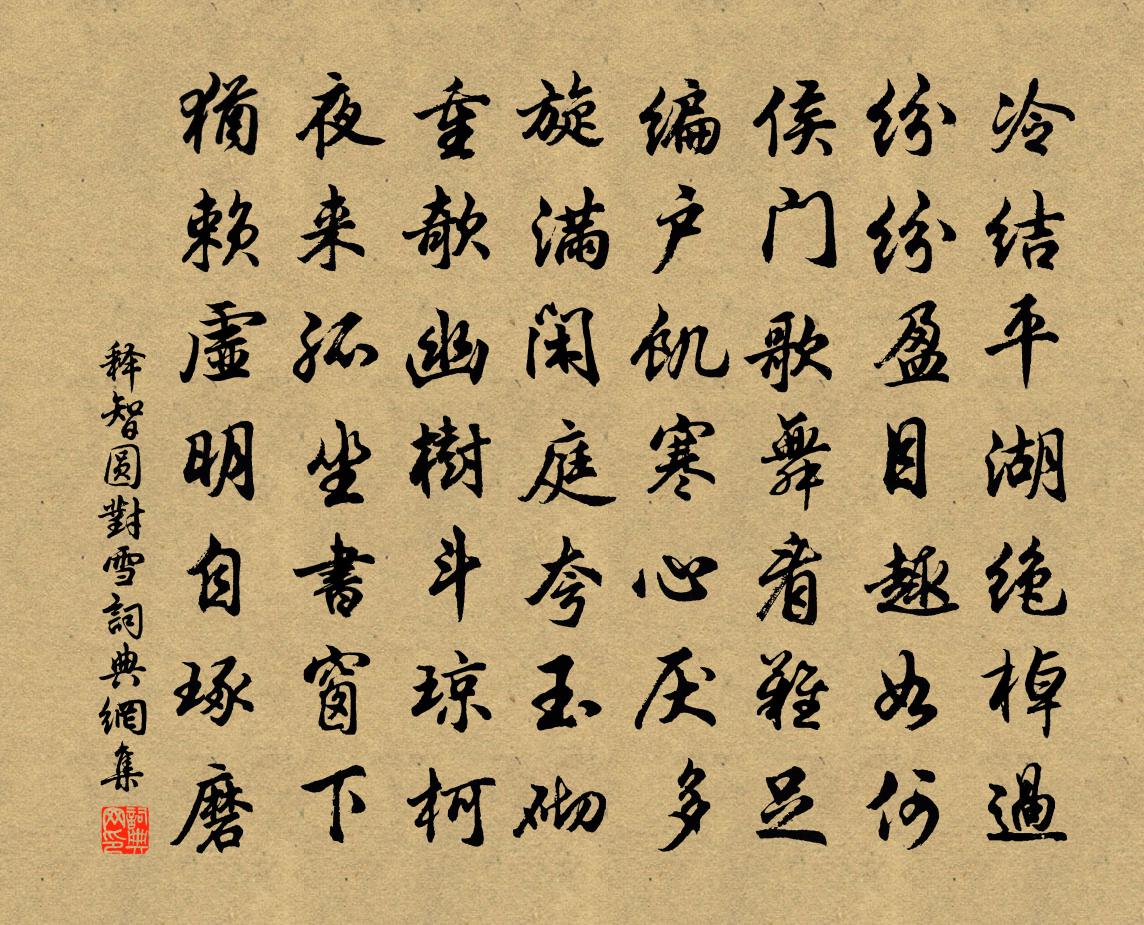 冷结平湖绝棹過
纷纷盈目趣如何
侯门歌舞看難足
编户飢寒心厌多
旋满闲庭夸玉砌
重欹幽樹斗琼柯
夜来孤坐書窗下
猶赖虚明自琢磨
释智圆對雪詞典網集
詞典网印